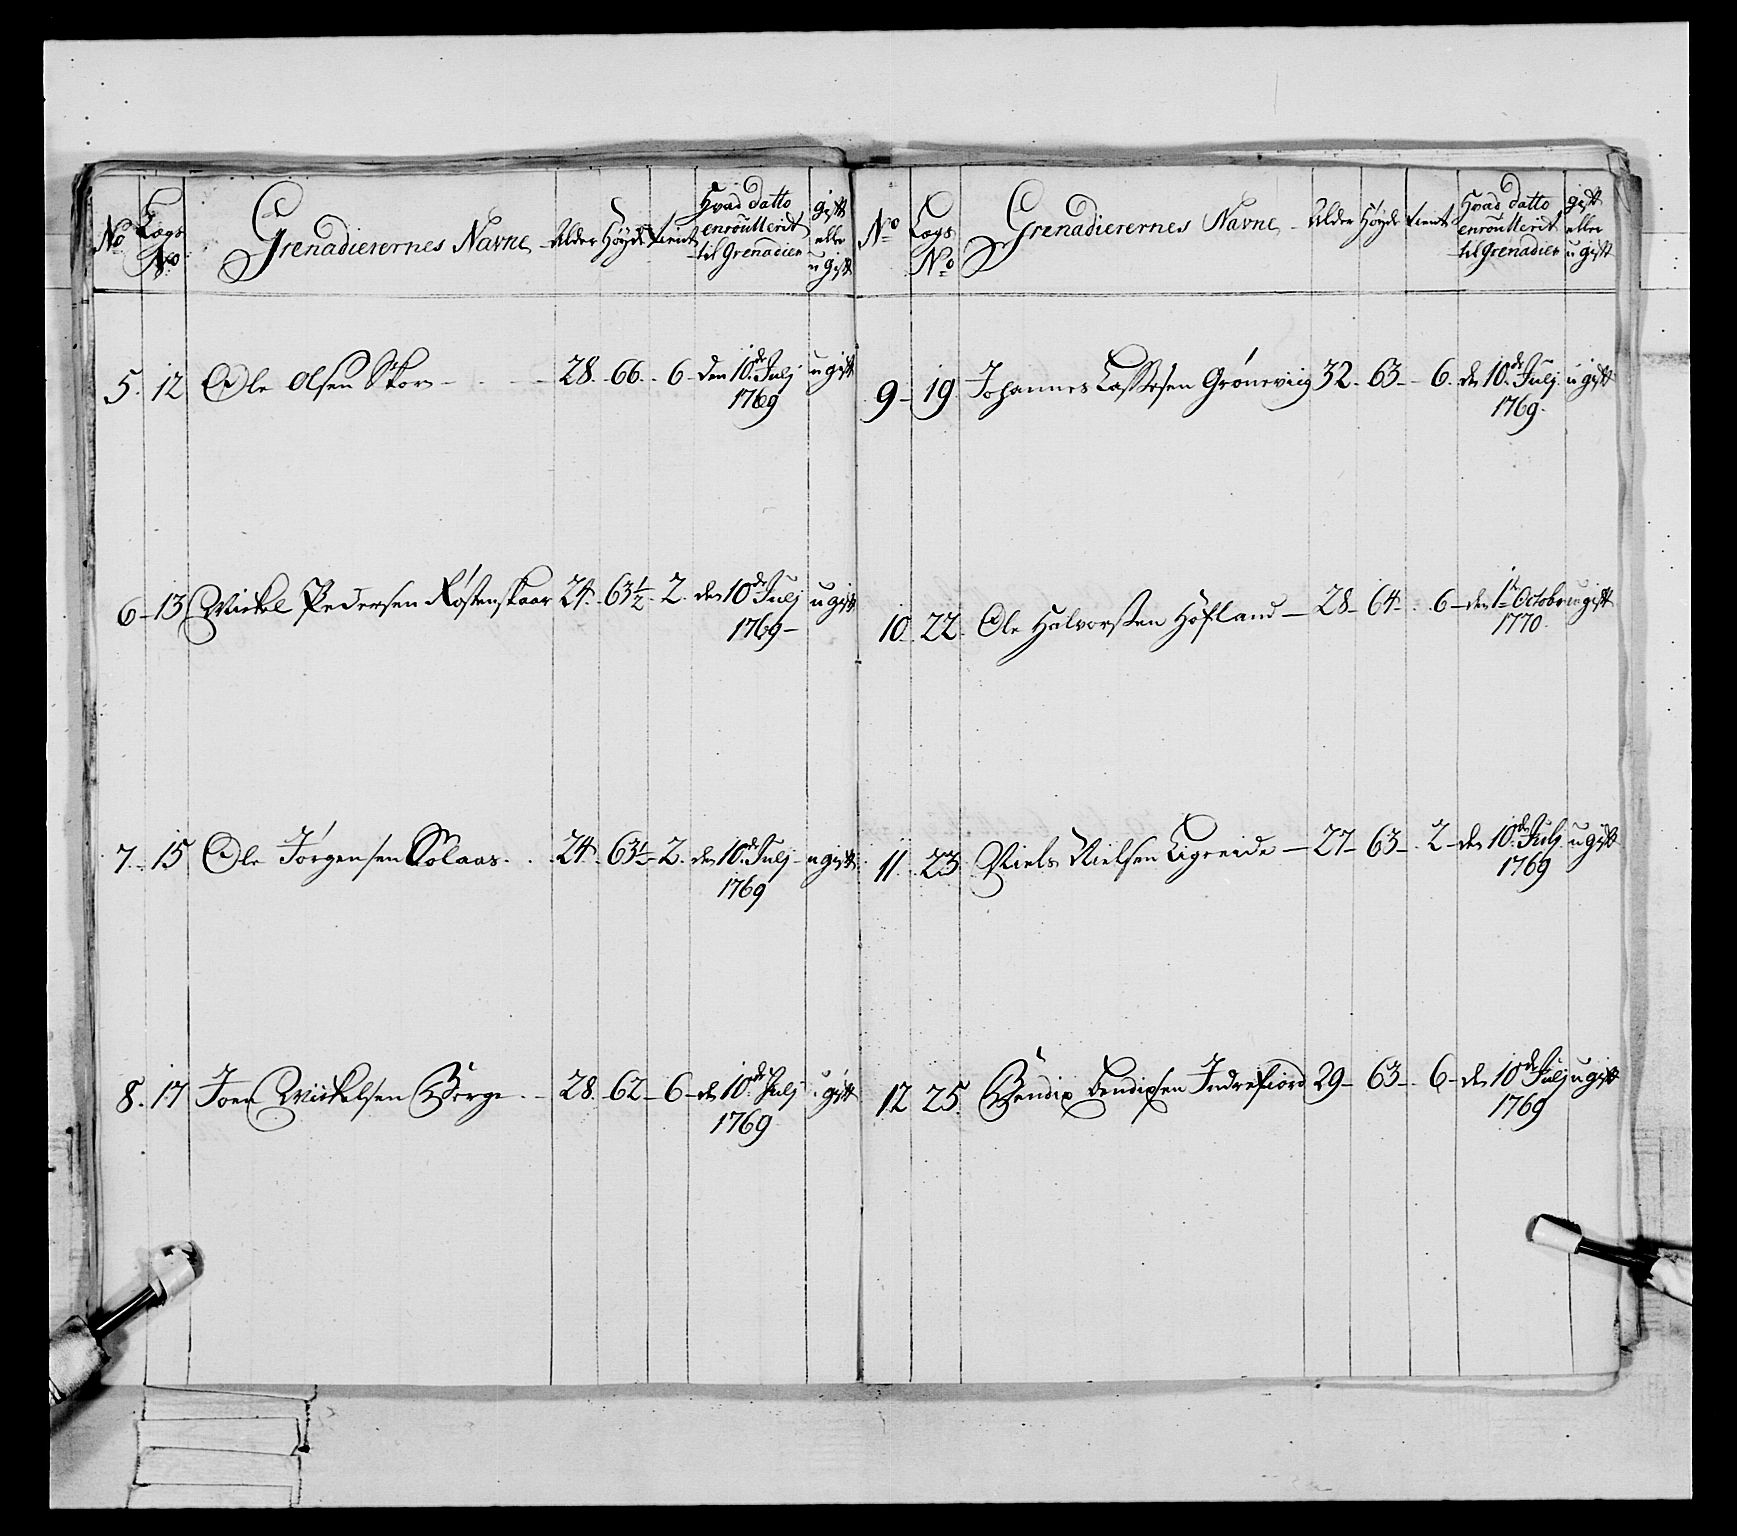 No Lægs No Grenadierernes Navne Alder Höyde tient Hvad datto enroulleridt til Grenadier gift eller ugift
5. 12 Ole Olsen Skor - 28. 66. 6. den 10de Julj 1769 ugift
6 - 13 Mickel Pedersen Røstenskaar 24. 63½. 2. den 10de Julj 1769 - ugift
7. 15 Ole Jörgensen Solaas. 24. 63½ - 2. den 10de Julj 1769 - ugift
8. 17 Joen Mickelsen Berge. - 28. 62 - 6 - den 10de Julj 1769 ugift
No Lægs No Grenadierernes Navne - Alder Höyde tient Hvad datto enroulleridt til Grenadier gift eller ugift
9 - 19 Johannes Lassesen Gröneviig 32 - 63 - 6. den 10de Julj 1769. ugift
10. 22. Ole Halvorsen Höfland - 28 - 64 - 6 - den 1te Octobr 1770. ugift
11. 23 Niels Nielsen Ligreide - 27 - 63 - 2 - den 10de Julj 1769 ugift
12 25. Bendix Bendixsen Indrefiord 29 - 63 - 6 - den 10de Julj 1769 ugift